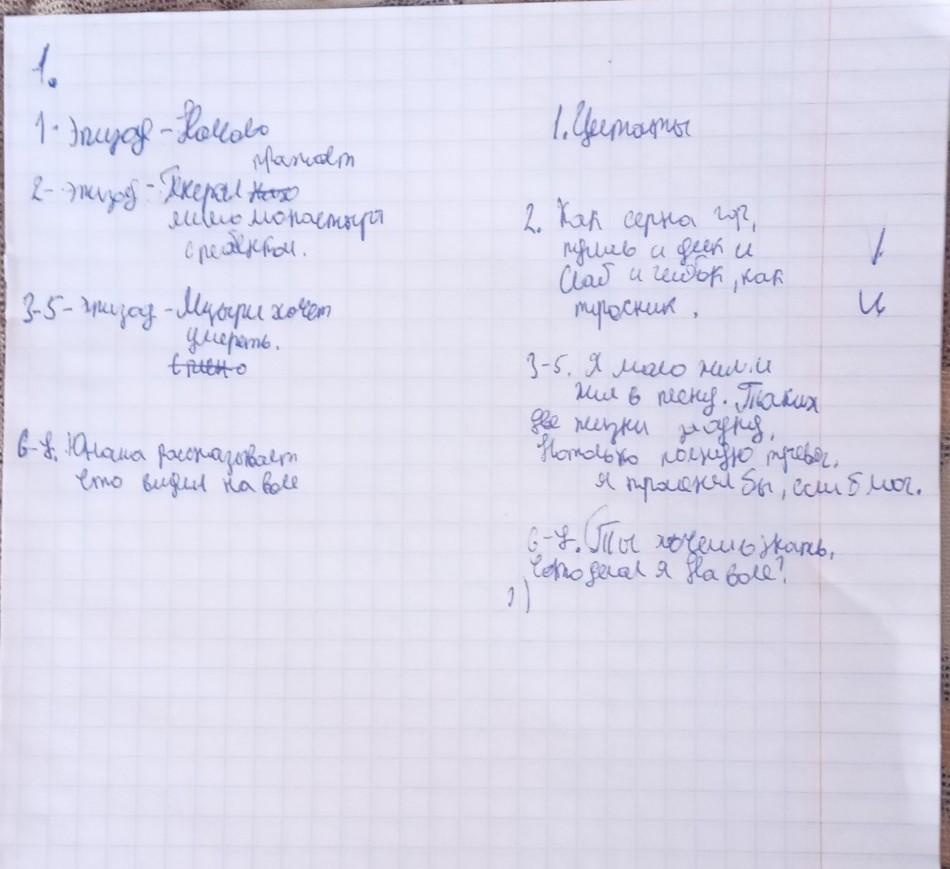 1.
1. Эпизод - Начало
проезжает
2- эпизод - Генерал
мимо монастыря
с ребёнком.
3-5 - эпизод - Мцыри хочет
умереть.
6-7. Юноша рассказывает
что видел на воле
1. Цитаты
2. Как серна гор,
пуглив и дик и
Слаб и гибок, как
тросник.
3-5. Я мало жил и
жил в плену. Таких
две жизни за одну,
Но только полную тревог,
я променял бы, если б мог.
6-7. Ты хочешь знать,
что делал я на воле?